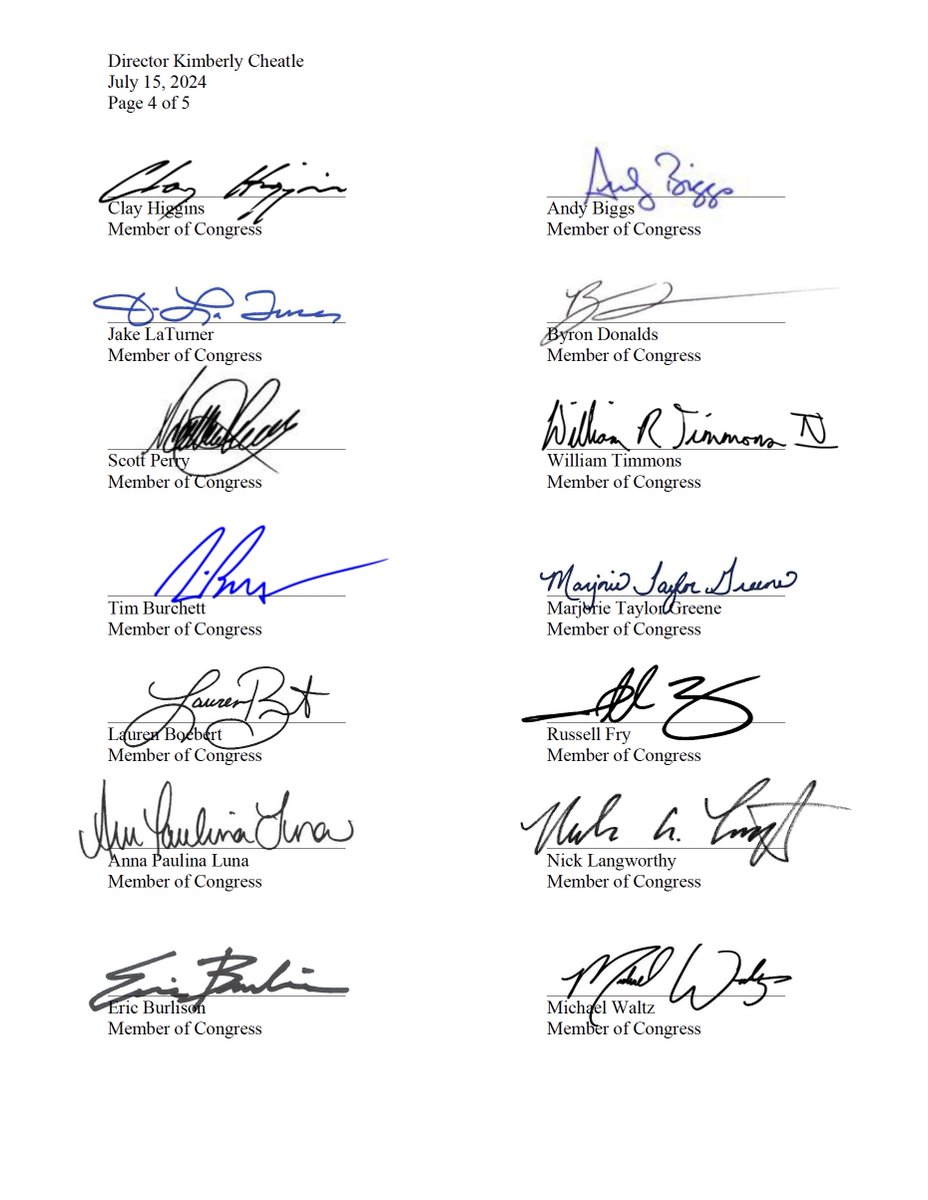 Director Kimberly Cheatle
July 15, 2024
Page 4 of 5
Clay Higgins
Andy Biggs
Clay Higgins
Member of Congress
Andy Biggs
Member of Congress
J. La Turner
Jake LaTurner
Member of Congress
Byron Donalds
Member of Congress
William R Timmons IV
Scott Perry
Member of Congress
William Timmons
Member of Congress
Marjorie Taylor Greene
Tim Burchett
Member of Congress
Marjorie Taylor Greene
Member of Congress
Lauren Boebert
Member of Congress
Russell Fry
Member of Congress
Anna Paulina Luna
Anna Paulina Luna
Member of Congress
Nick Langworthy
Member of Congress
Eric Burlison
Michael Waltz
Eric Burlison
Member of Congress
Michael Waltz
Member of Congress